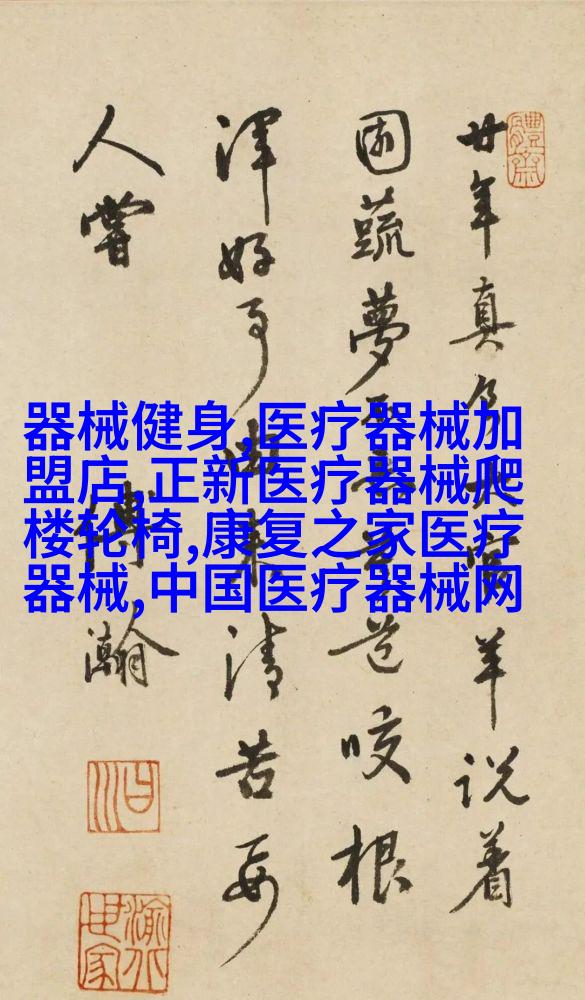 器械健身,医疗器械加
盟店,正新医疗器械爬
楼轮椅,康复之家医疗
器械,中国医疗器械网
體齋
廿年真羊說着
園蔬夢道咬根
渾好事來清苦要
人嘗
傅瀚